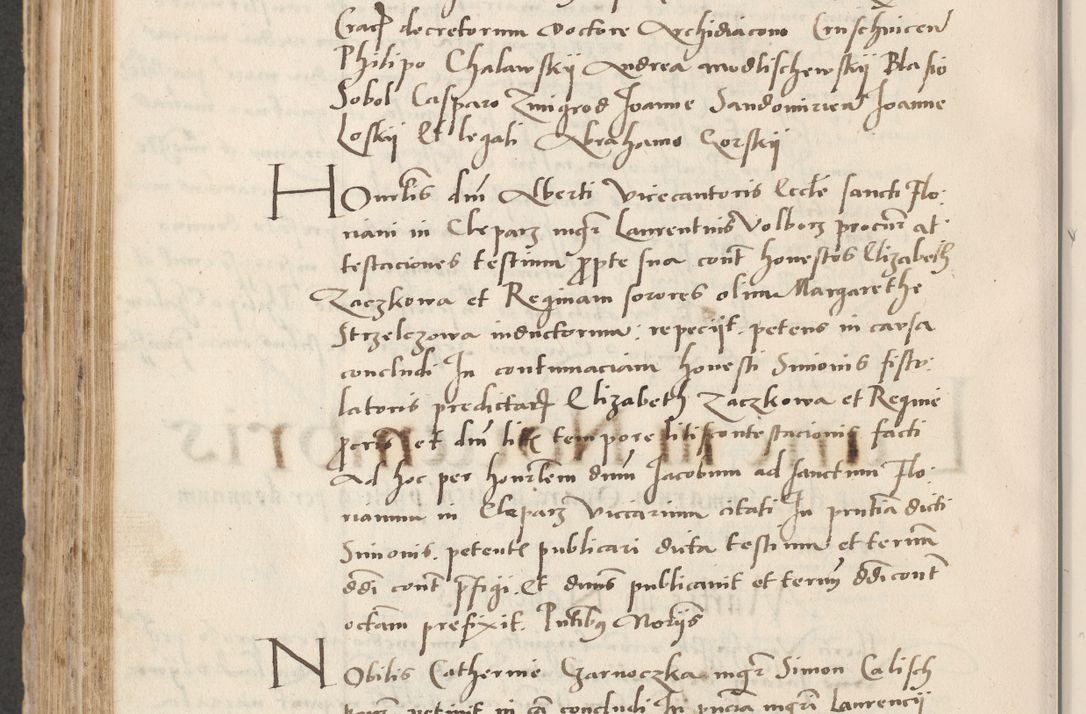 Grac̄ decretorum Doctore Archidiacono Cruschvicen̄
Philipo Chalawskij Andrea Modlischewskij Blasio
Sobol Casparo Zmigrod Joanne Sandomirien̄ Joanne
Loskij Et legali Abrahamo Gorskij
Honorabilis dni Alberti Vicecantoris Eccle sancti Flo:
riani in Cleparz mgr Laurentius Volborz procur at
testaciones testium ꝓpte sua cont honestas Elizabeth
Zaczkowa et Reginam sorores olim Margarethe
Strzelczowa inductorum: repecijt. petens in causa
concludi In contumaciam honesti Simonis fistu:
latoris predictarꝫ Elizabeth Zaczkowa et Regine
et dni litis tempore litis contestacionis facti
Ad hoc per honorlem dnum Jacobum ad sanctum Flo:
rianum in Cleparz Viccarium citati In pntia dicti
Simonis. petentis publicari dicta testium et termm
ddi cont pfigi. Et dnus publicavit et termm ddi cont
octam prefixit. Pntibus Notarijs
Nobilis Catherine Czarnoczka mgr Simon Calisch
petivit in ca concludi In pncia mgri Laurencij